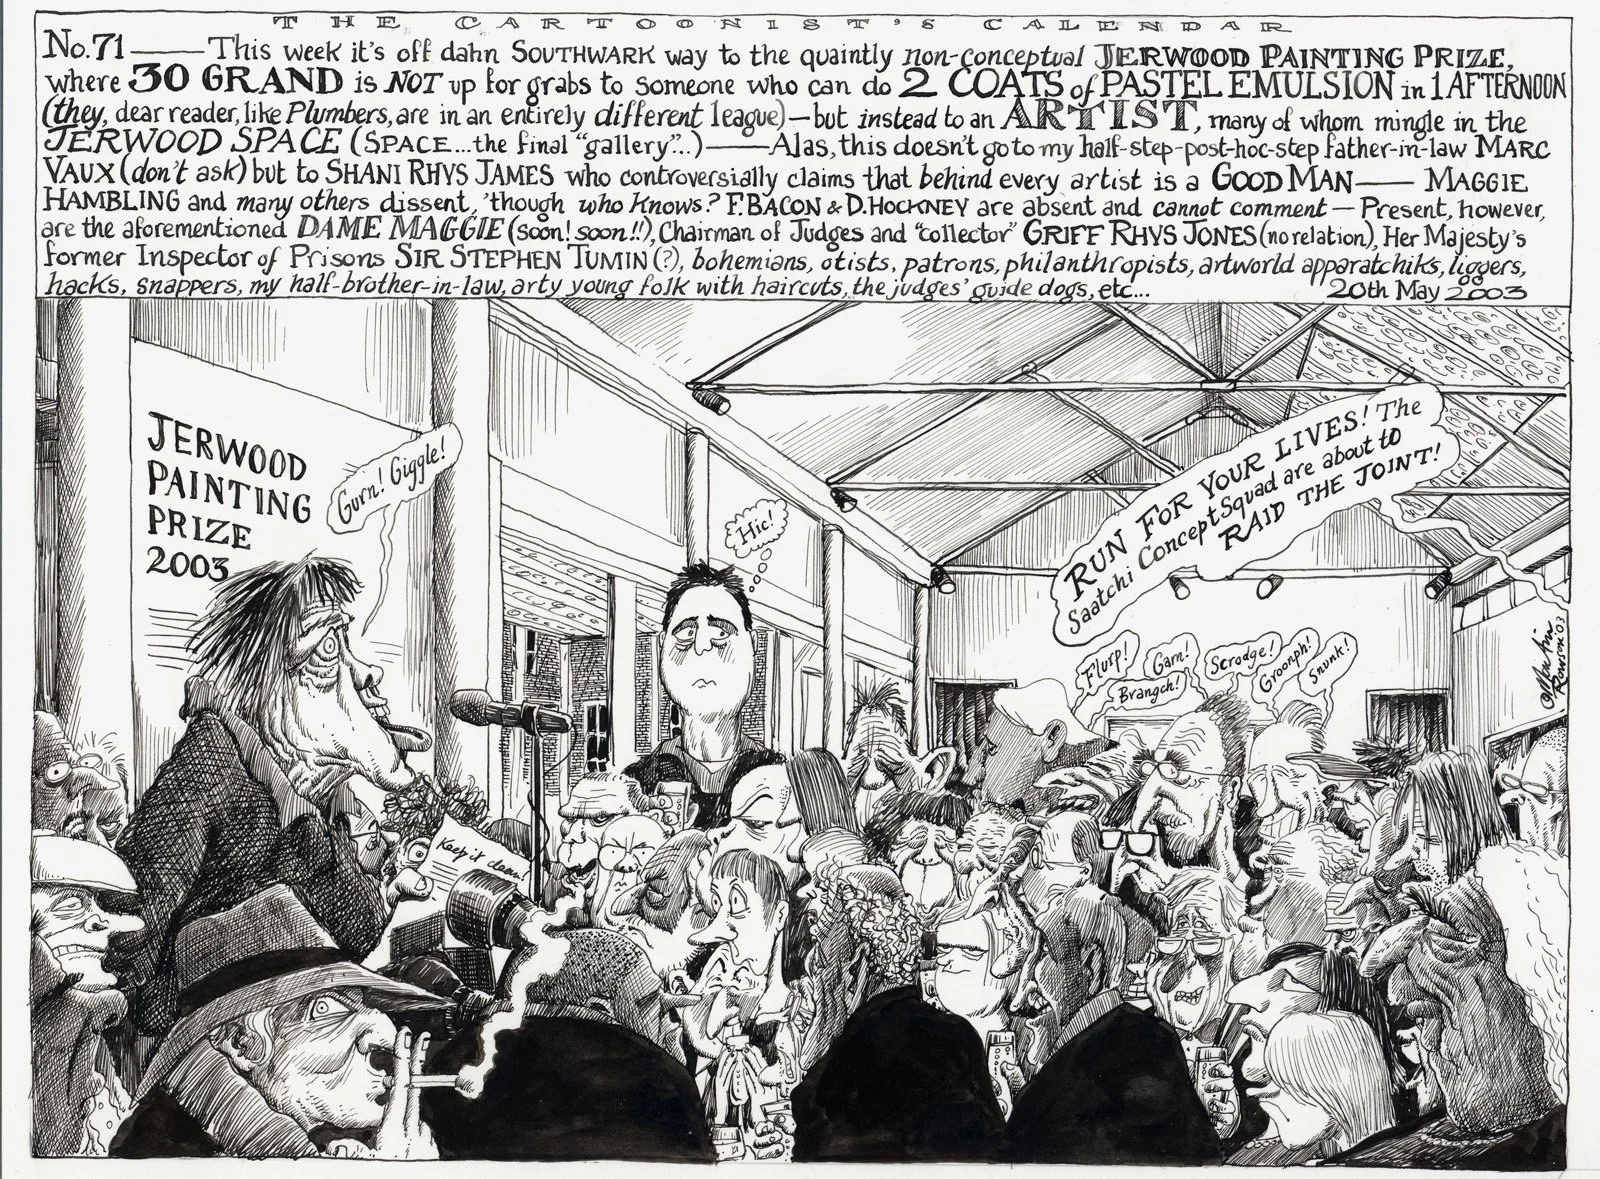 THE CARTOONIST'S CALENDAR
No. 71 — This week it's off dahn SOUTHWARK way to the quaintly non-conceptual JERWOOD PAINTING PRIZE,
where 30 GRAND is NOT up for grabs to someone who can do 2 COATS of PASTEL EMULSION in 1 AFTERNOON
(they, dear reader, like Plumbers, are in an entirely different league) — but instead to an ARTIST, many of whom mingle in the
JERWOOD SPACE (SPACE...the final "gallery"...) — Alas, this doesn't go to my half-step-post-hoc-step father-in-law MARC
VAUX (don't ask) but to SHANI RHYS JAMES who controversially claims that behind every artist is a GOOD MAN — MAGGIE
HAMBLING and many others dissent, 'though who knows? F. BACON & D. HOCKNEY are absent and cannot comment — Present, however,
are the aforementioned DAME MAGGIE (soon! soon!!), Chairman of Judges and "collector" GRIFF RHYS JONES (no relation), Her Majesty's
former Inspector of Prisons SIR STEPHEN TUMIN (?), bohemians, otists, patrons, philanthropists, artworld apparatchiks, liggers,
hacks, snappers, my half-brother-in-law, arty young folk with haircuts, the judges' guide dogs, etc... 20th May 2003
JERWOOD
PAINTING
PRIZE
2003
Gurn! Giggle!
Hic!
RUN FOR YOUR LIVES! The
Saatchi Concept Squad are about to
RAID THE JOINT!
Flurp!
Garn!
Brangch!
Scrodge!
Groonph!
Snunk!
Keep it clean!
©Martin
Rowson '03